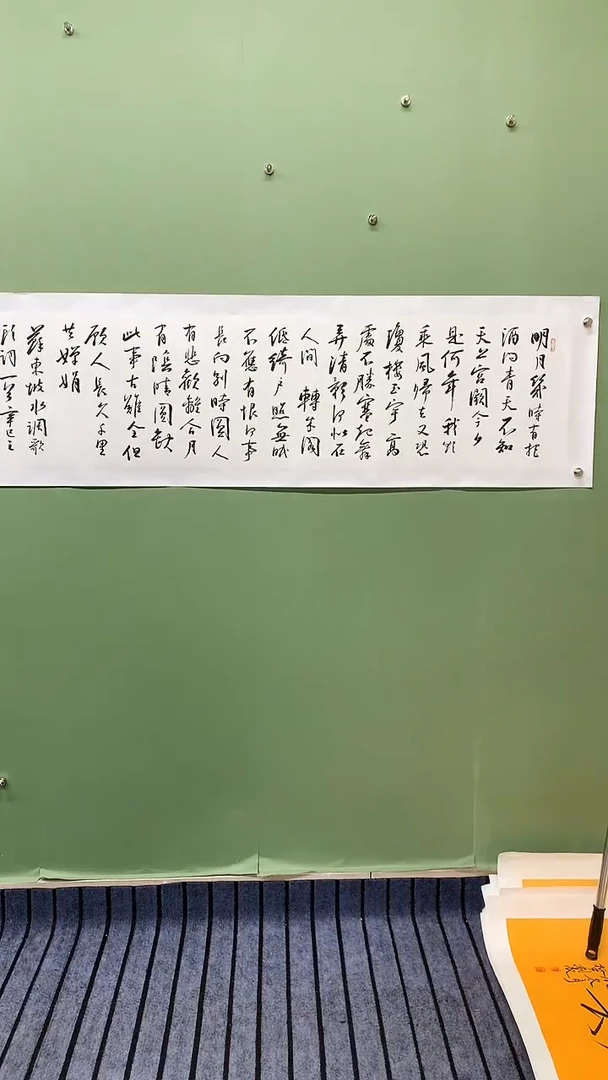 明月幾時有把
酒问青天不知
天上宫闕今夕
是何年 我欲
乘風歸去又恐
瓊樓玉宇 高
處不勝寒起舞
弄清影何似在
人間 轉朱阁
低綺户照無眠
不應有恨何事
長向别時圓人
有悲歡離合月
有陰晴圓缺
此事古難全但
願人長久千里
共嬋娟
蘇東坡水調歌
頭詞一首辛丑
不